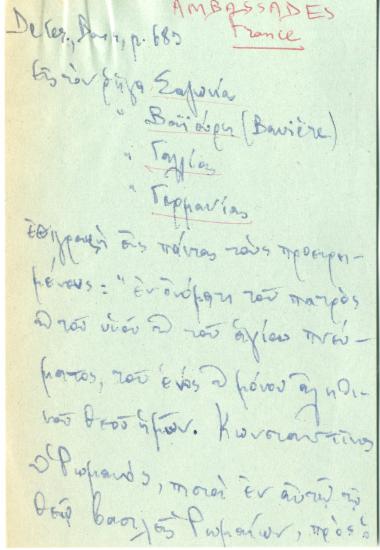 AMBASSADES
France
De Cer., Bonn, p. 689
Εἰς τὸν ρῆγα Σαξωνία
" Βαϊούρη (Bavière)
" Γαλλίας
" Γερμανίας
ἐπιγραφὴ εἰς πάντας τοὺς προειρη-
μένους: "ἐν ὀνόματι τοῦ πατρὸς
ϗ τοῦ υἱοῦ ϗ τοῦ ἁγίου πνεύ-
ματος, τοῦ ἑνὸς ϗ μόνου ἀληθι-
νοῦ θεοῦ ἡμῶν. Κωνσταντῖνος
ϗ Ῥωμανός, πιστοὶ ἐν αὐτῷ τῷ
θεῷ βασιλεῖς Ῥωμαίων, πρὸς